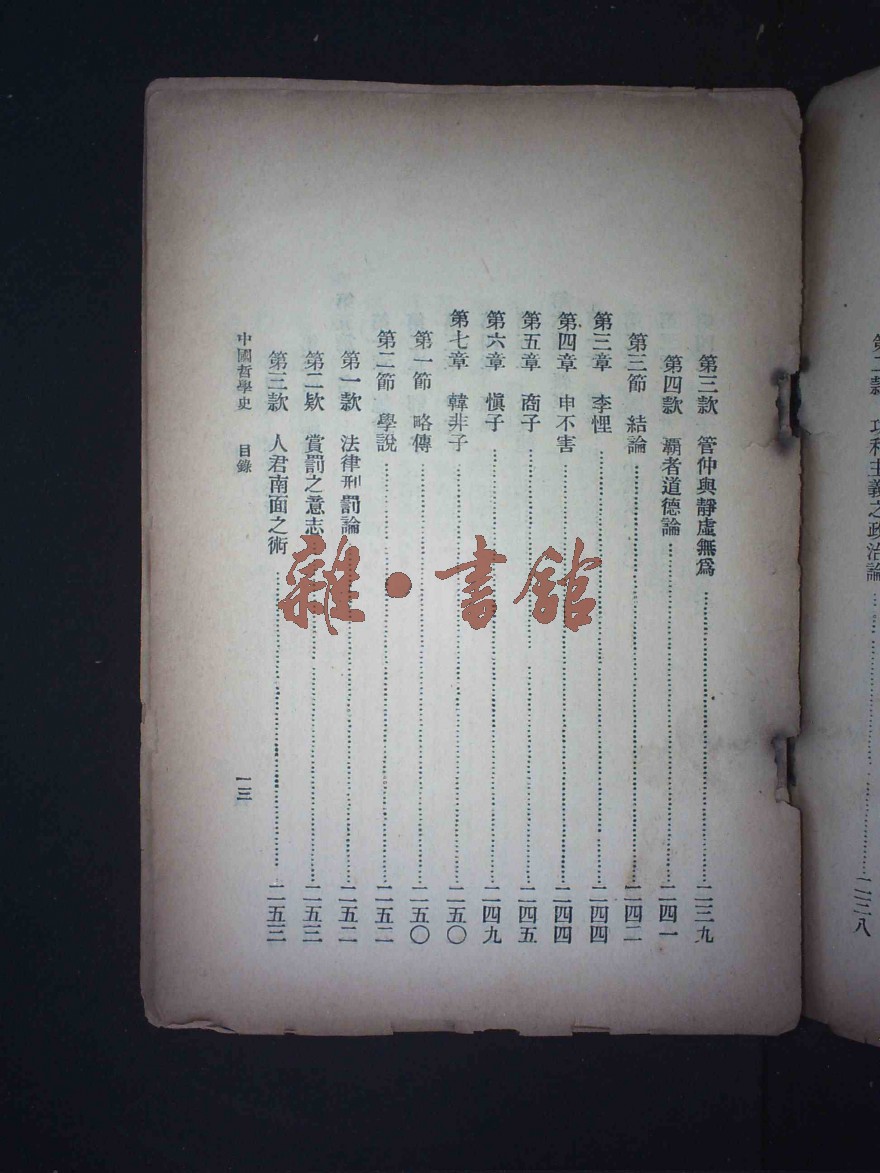 第二款　功利主義之政治論……二三八
第三款　管仲與靜虛無爲……二三九
第四款　霸者道德論……二四一
第三節　結論……二四二
第三章　李悝……二四四
第四章　申不害……二四四
第五章　商子……二四五
第六章　愼子……二四九
第七章　韓非子……二五〇
第一節　略傳……二五〇
第二節　學說……二五二
第一款　法律刑罰論……二五二
第二欵　賞罰之意志……二五三
第三款　人君南面之術……二五三
中國哲學史　目錄　一三
雜·書館